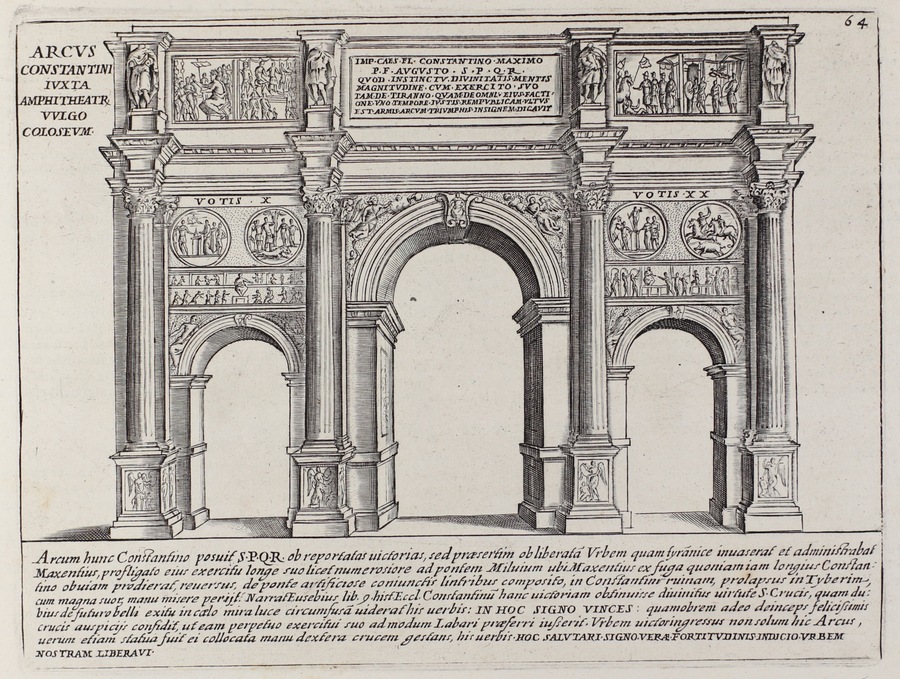 64
ARCVS
CONSTANTINI
IVXTA
AMPHITHEATR:
VVLGO
COLOSEVM·
IMP·CAES·FL· CONSTANTINO·MAXIMO
P·F·AVGVSTO · S · P · Q · R ·
QVOD · INSTINCTV · DIVINITATIS·MENTIS
MAGNITVDINE · CVM · EXERCITO · SVO
TAM·DE·TIRANNO·QVAM·DE·OMNI·EIVS·FACTI-
ONE·VNO TEMPORE·IVSTIS·REMPVBLICAM·VLTVS
EST·ARMIS·ARCVM·TRIVMPHIS·INSIGNEM·DICAVIT
VOTIS · X
VOTIS · XX
Arcum hunc Constantino posuit S·P·Q·R· ob reportatas uictorias, sed præsertim ob liberatā Vrbem quam tyrānice inuaserat et administrabat
Maxentius, profligato eius exercitu longe suo licet numerosiore ad pontem Miluium ubi Maxentius ex fuga quoniam iam longius Constan-
tino obuiam prodierat, reuersus, de ponte artificiose coniunctis lintribus composito, in Constantini ruinam, prolapsus in Tyberim,
cum magna suor. manu misere perijt. Narrat Eusebius lib. 9 hist Eccl Constantinū hanc uictoriam obtinuisse diuinitus uirtute S· Crucis, quam du-
bius de futuro belli exitu in cælo mira luce circumfusā uiderat his uerbis: IN HOC SIGNO VINCES : quamobrem adeo deinceps felicissimis
crucis auspicijs confidit, ut eam perpetuo exercitui suo ad modum Labari præferri iusserit. Vrbem uictor ingressus non solum hic Arcus,
uerum etiam statua fuit ei collocata manu dextera crucem gestans, his uerbis· HOC SALVTARI·SIGNO·VERÆ·FORTITVDINIS·INDICIO·VRBEM
NOSTRAM LIBERAVI·